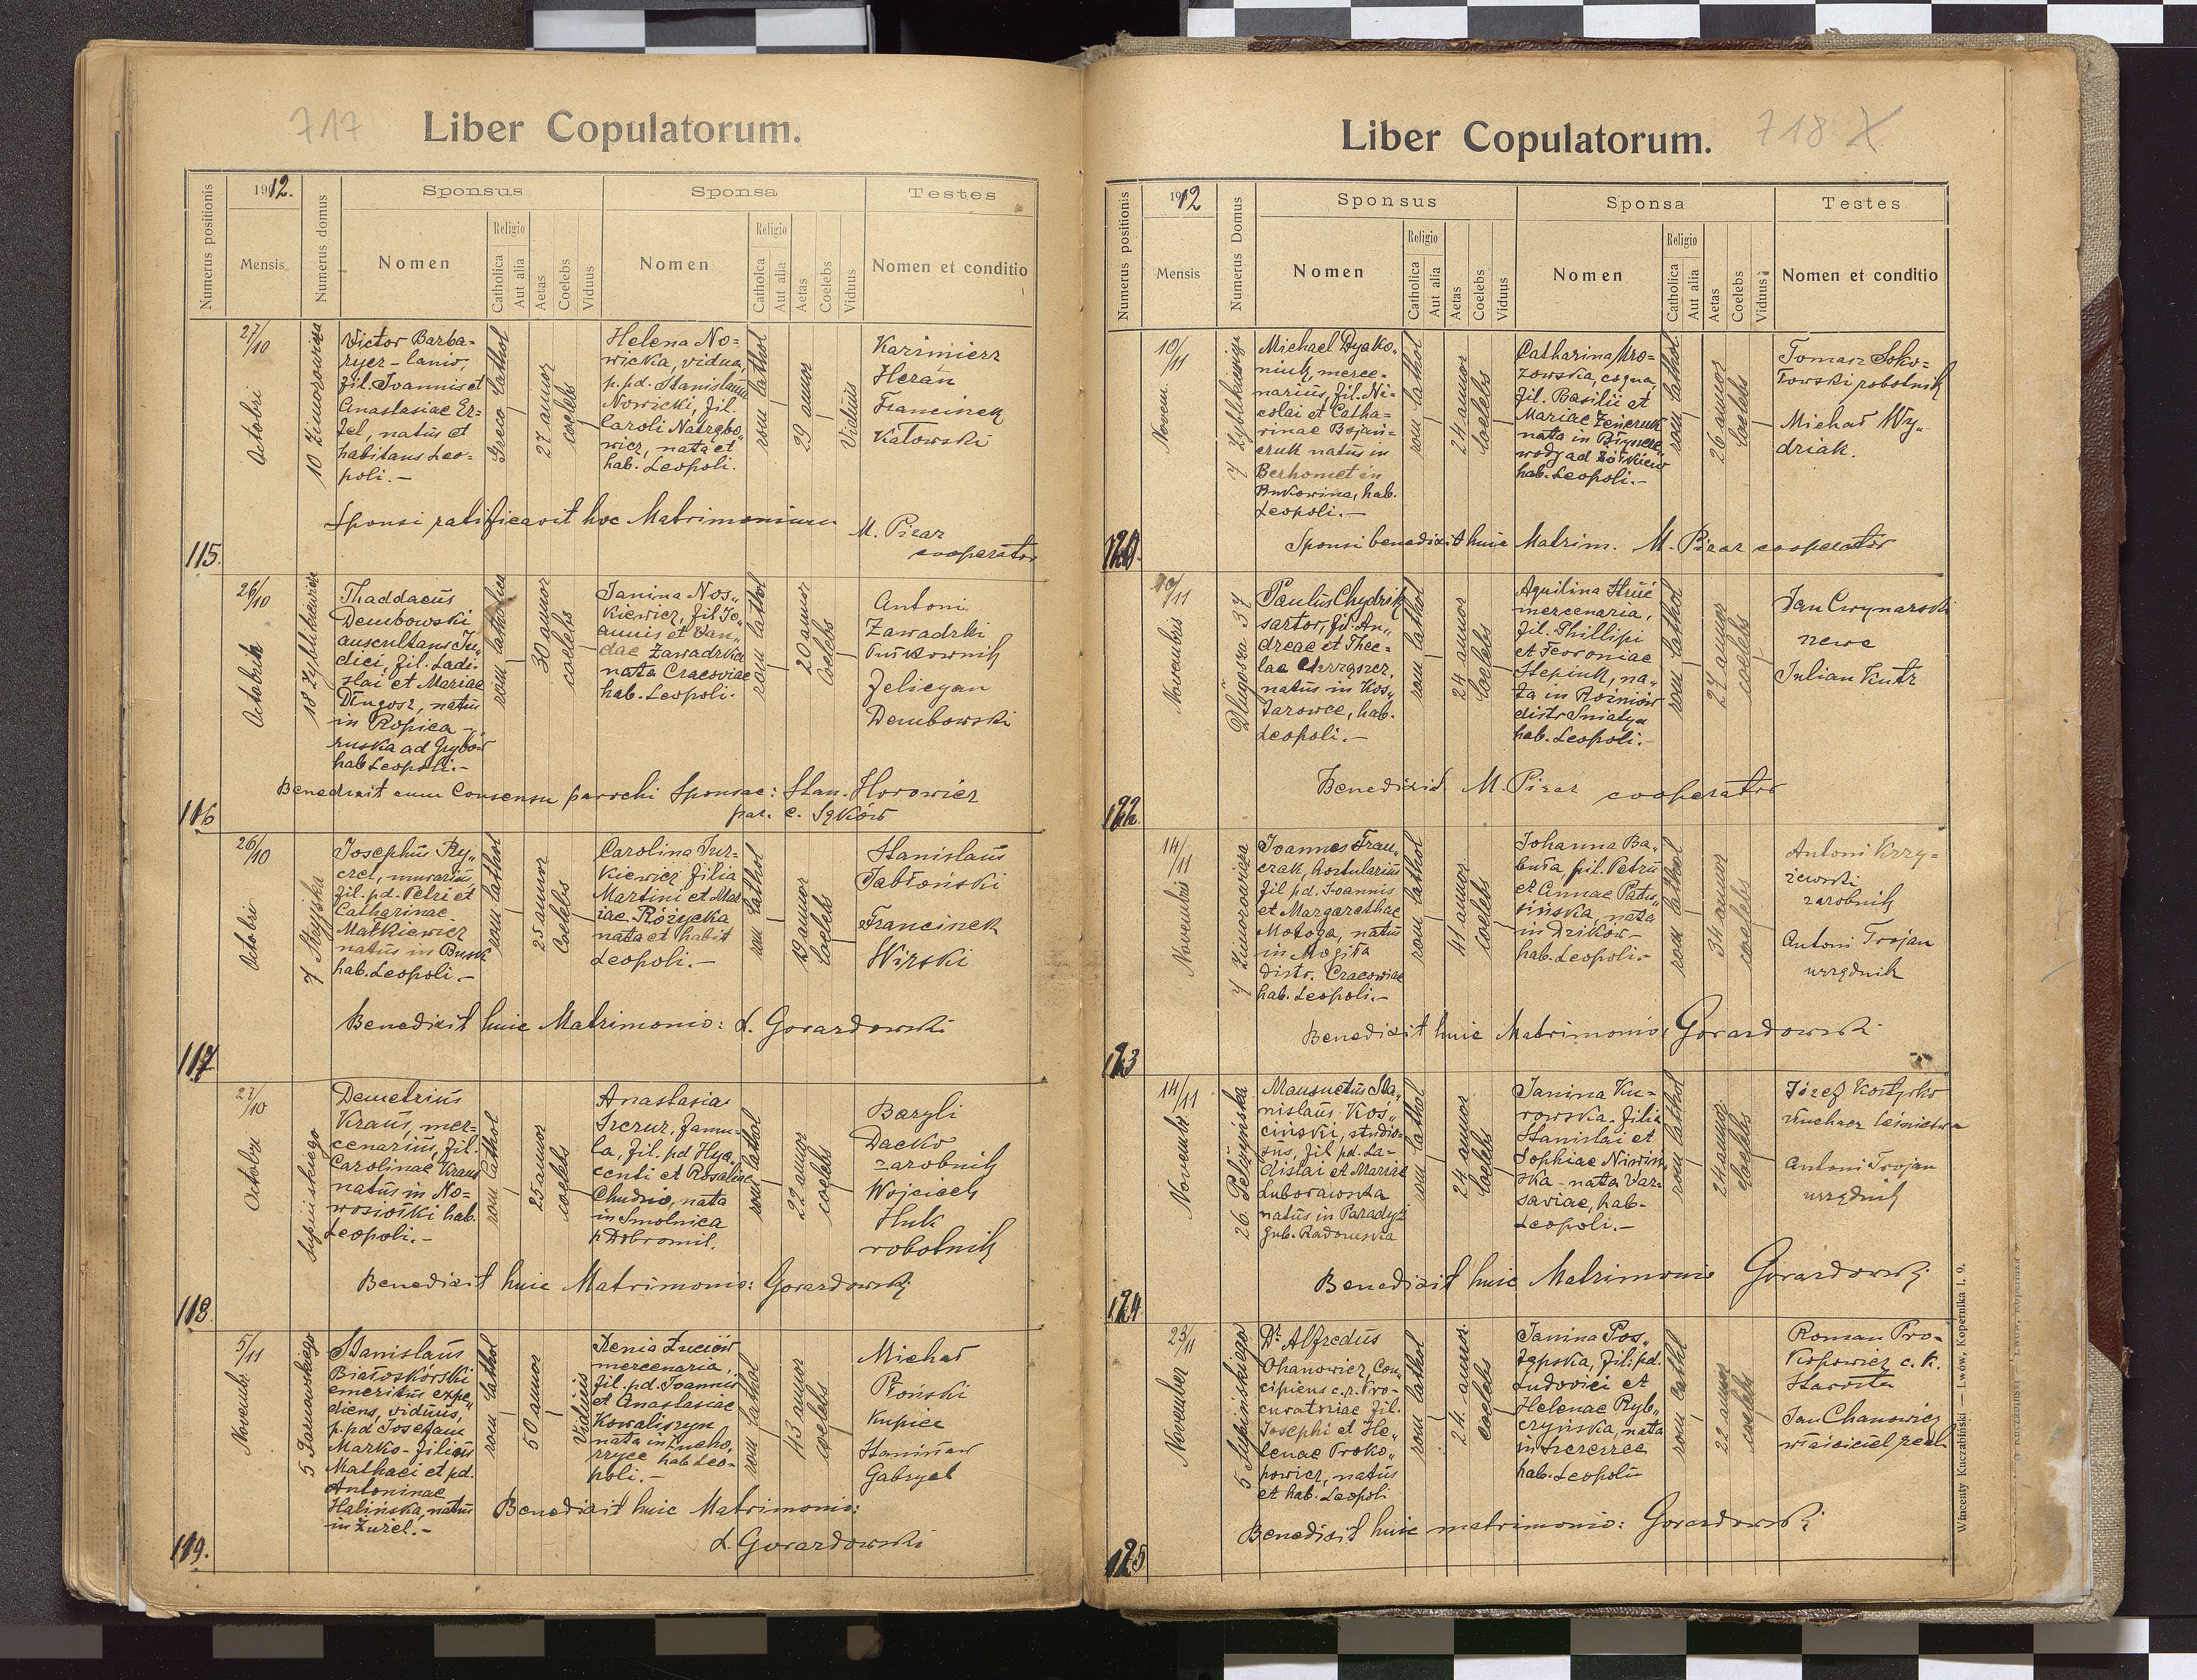 717
Liber Copulatorum.
Numerus positionis
1912.
Mensis
Numerus domus
Sponsus
Nomen
Religio
Catholica
Aut alia
Aetas
Coelebs
Viduus
Sponsa
Nomen
Religio
Catholca
Aut alia
Aetas
Coelebs
Viduus
Testes
Nomen et conditio
115.
27/10
Octobri
10 Zimorowicza
Victor Barba=
ryer - lanio,
fil. Joannis et
Anastasiae Er=
zel, natus et
habitans Leo=
poli. -
Greco Cathol
27 annor
coelebs
Helena No=
wicka, vidua
p. pd. Stanislaum
Nowicki, fil.
Caroli Natrębo
wicz, nata et
hab. Leopoli.
rom Cathol
29 annor
Viduus
Kazimierz
Heran
Francinek
Katowski
Sponsi ratificavit hoc Matrimonium M. Pirar
cooperator
116
26/10
Octobris
18 Zyblikiewicza
Thaddaeus
Dembowski
auscultans Ju„
dici, fil. Ladi=
slai et Mariae
Długosz, natus
in Ropica -
ruska ad Grybów
hab Leopoli. -
rom Catholica
30 annor
coelebs
Janina Nos„
kiewicz, fil Jo„
annis et Van„
dae Zawadzka
nata Cracoviae
hab. Leopoli.
rom Cathol
20 annor
Coelebs
Antoni
Zawadzki
Pułkownik
Felicyan
Dembowski
Benedixit cum Consensu parochi Sponsae: Stan. Horowicz
par. e. Sąków
117
26/10
Octobri
7 Stryjska
Josephus Ry„
czel, murarius
fil. pd. Petri et
Catharinae
Matkiewicz
natus in Busk
hab. Leopoli. -
rom Cathol
25 annor
Coelebs
Carolina Jur=
kiewicz filia
Martini et Mar
iae Różycka
nata et habit
Leopoli. -
rom Cathol
19 annor
Coelebs
Stanislaus
Jabłoński
Francinek
Wirski
Benedixit huic Matrimonio: L. Gorazdowski
118
27/10
Octobri
Supińskiego
Demetrius
Kraus, mer=
cenarius, fil.
Carolinae Kraus
natus in No=
wosiołki hab.
Leopoli. -
rom Cathol
25 annor
coelebs
Anastasia
Szczur, famu=
la, fil. pd Hya„
centi et Rosaliae
Chudzio, nata
in Smolnica
p Dobromil.
rom Cathol
22 annor
coelebs
Bazyli
Dacko
zarobnik
Wojciech
Huk
robotnik
Benedixit huic Matrimonio: Gorazdowski
119.
5/11
Novembr
5 Tarnowskiego
Stanislaus
Białoskórski
emeritus expe„
diens, viduus,
p. pd Josepham
Marko - filius
Mathaei et pd.
Antoninae
Halińska, natus
in Zurel. -
rom Cathol
50 annor
Viduus
Xenia Luciów
mercenaria,
fil. pd. Joannis
et Anastasiae
Kowaliszyn
nata in Zucho„
rzyce hab Leo=
poli. -
rom Cathol
43 annor
coelebs
Michał
Płoński
Kupiec
Stanisław
Gabryel
Benedixit huic Matrimonio:
L. Gorazdowski
718 X
Liber Copulatorum.
Numerus positionis
1912
Mensis
Numerus Domus
Sponsus
Nomen
Religio
Catholica
Aut alia
Aetas
Coelebs
Viduus
Sponsa
Nomen
Religio
Catholica
Aut alia
Aetas
Coelebs
Viduus
Testes
Nomen et conditio
10/11
Novem.
7 Zyblikiewicza
Michael Dyako„
niuk, merce=
narius, fil. Ni=
colai et Catha=
rinae Bojani=
czuk natus in
Berhomet in
Bukowina, hab.
Leopoli. -
rom Cathol
24 annor
Coelebs
Catharina Mro=
zowska, coqua,
fil. Basilii et
Mariae Zeńczuk
nata in
wody ad Żółkiew
hab. Leopoli. -
rom Cathol
26 annor
Coelebs
Tomasz Soko=
łowski robotnik
Michał Wy„
driak.
Sponsi benedixit huic Matrim. M. Pirar cooperator
122.
10/11
Novembris
Długosza 37
Paulus Chydzik
sartor, fil. An„
dreae et Thec=
lae Chrząszcz,
natus in Kos„
tarowce, hab.
Leopoli. -
rom Cathol
24 annor
Coelebs
Aquilina Struć
mercenaria,
fil. Phillipi
et Feoroniae
Stepiuk, na„
ta in Rożniów
distr Sniatyn
hab. Leopoli. -
rom Cathol
27 annor
coelebs
Jan Cwynarski
Julian Kutz
Benedixit M. Pirar cooperator
123
14/11
Novembris
7 Zimorowicza
Joannes Fran„
czak, hortularius
fil pd. Joannis
et Margarethae
Motoga, natus
in Mogiła
distr. Cracoviae
hab. Leopoli. -
rom Cathol
41 annor
Coelebs
Johanna Ba„
buła fil. Petri
et Annae Patu„
sińska, nata
in Dzików -
hab. Leopoli. -
rom Cathol
34 annor
coelebs
Antoni Krzy=
żewski
zarobnik
Antoni Trojan
urzędnik
Benedixit huic Matrimonio: Gorazdowski
124
14/11
Novembr
26. Pełczyńska
Mansuetus Sta„
nislaus Koś„
ciński, studio„
sus, fil pd. La-
dislai et Mariae
Luborawska
natus in Paradyż
gub. Radomska
rom Cathol
24 annor
Coelebs
Janina Ku=
rowska, filia
Stanislai et
Sophiae Niwiń
ska - nata Var=
saviae, hab-
Leopoli. -
rom Cathol
24 annor
coelebs
Józef Kostyrko
słuchacz leśnictwa
Antoni Trojan
urzędnik
Benedixit huic Matrimonio Gorazdowski
125
23/11
November
5 Supińskiego
Dr. Alfredus
Ohanowicz, Con„
cipiens c.r. Pro=
curatoriae fil.
Josephi et He„
lenae Proko„
powicz, natus
et hab. Leopoli
rom Cathol
24 annor.
coelebs
Janina Pos„
tępska, fil. pd.
Ludovici et
Helenae Ryb„
czyńska, nata
in Szczerzec
hab. Leopoli
rom Cathl
22 annor
coelebs
Roman Pro=
kopowicz c. k.
Starosta
Jan Chanowicz
właściciel realn
Benedixit huic matrimonio: Gorazdowski
Wincenty Kuczabiński. — Lwów, Kopernika l. 9.